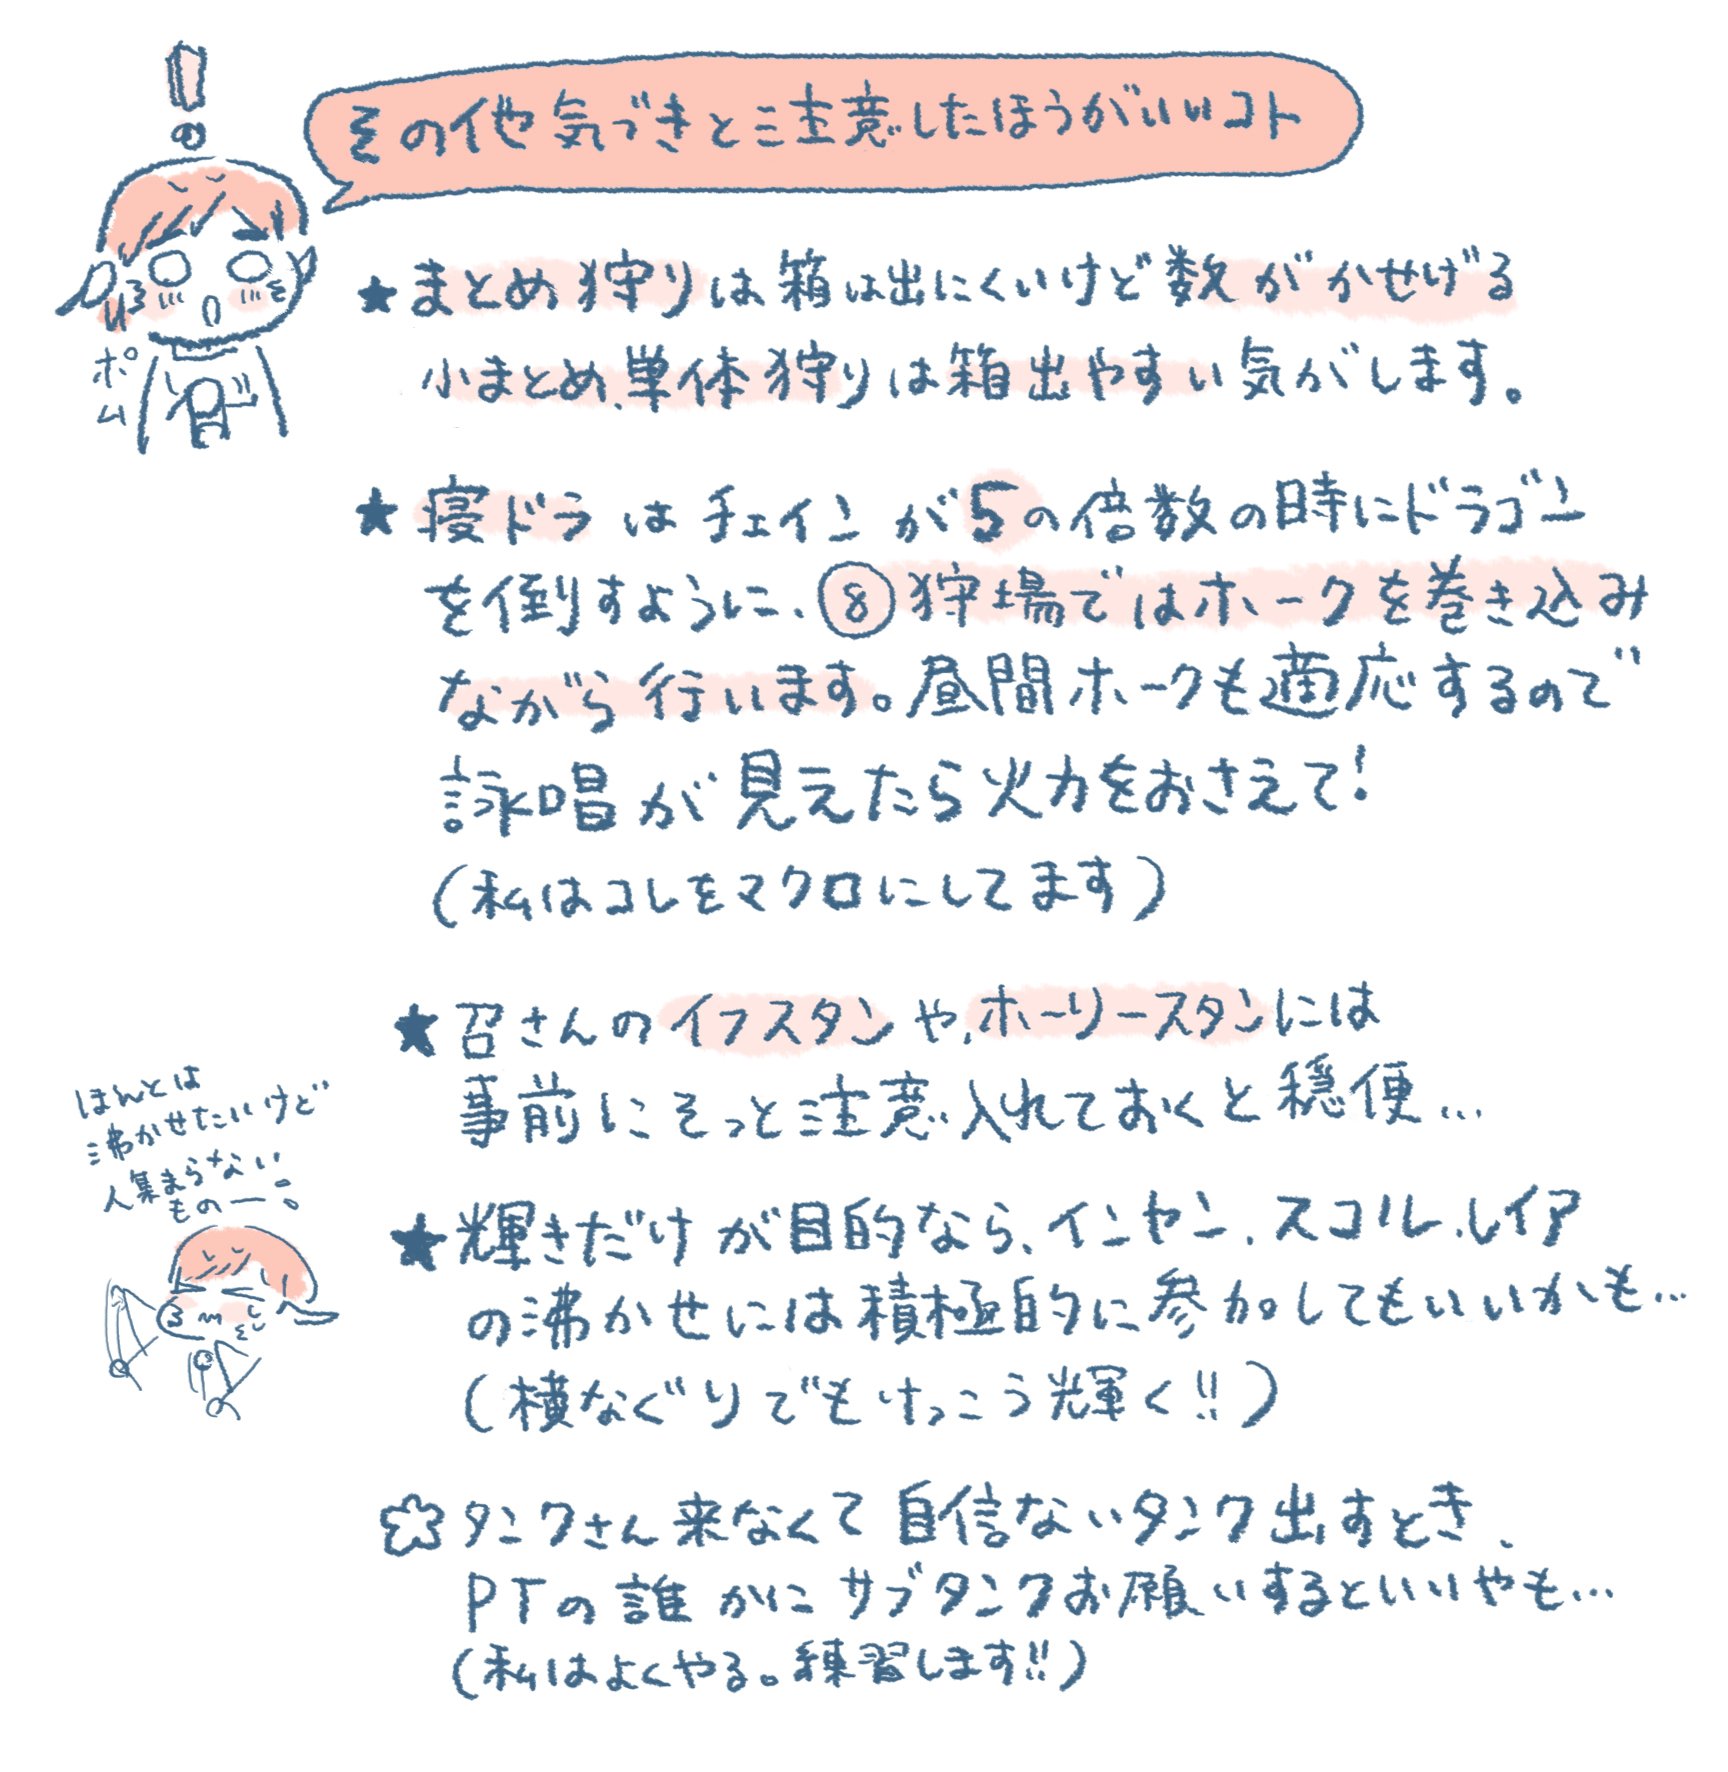 その他気づきと注意したほうがいいコト
ポム
★まとめ狩りは箱は出にくいけど数がかせげる
小まとめ、単体狩りは箱出やすい気がします。
★寝ドラはチェインが5の倍数の時にドラゴン
を倒すように、⑧狩場ではホークを巻き込み
ながら行います。昼間ホークも適応するので
詠唱が見えたら火力をおさえて!
(私はコレをマクロにしてます)
★召さんのイフスタンや、ホーリースタンには
事前にそっと注意入れておくと穏便…
ほんとは
沸かせたいけど
人集まらない
ものー。
★輝きだけが目的なら、インセン、スコル、レイア
の沸かせには積極的に参加してもいいかも…
(横なぐりでもけっこう輝く!!)
✩タンクさん来なくて自信ないタンク出すとき、
PTの誰かにサブタンクお願いするといいやも…
(私はよくやる。練習します!!)